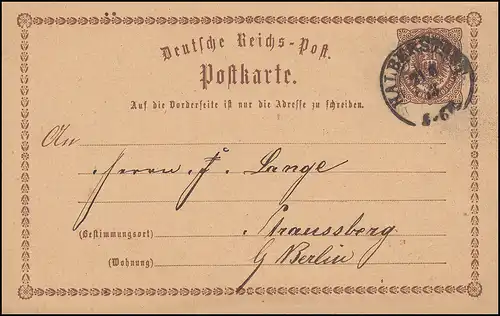 Deutsche Reichs-Post.
Postkarte.
Auf die Vorderseite ist nur die Adresse zu schreiben.
HALBERSTADT
5-6N
An
Herrn F. Lange
(Bestimmungsort) Straussberg
(Wohnung) b/ Berlin